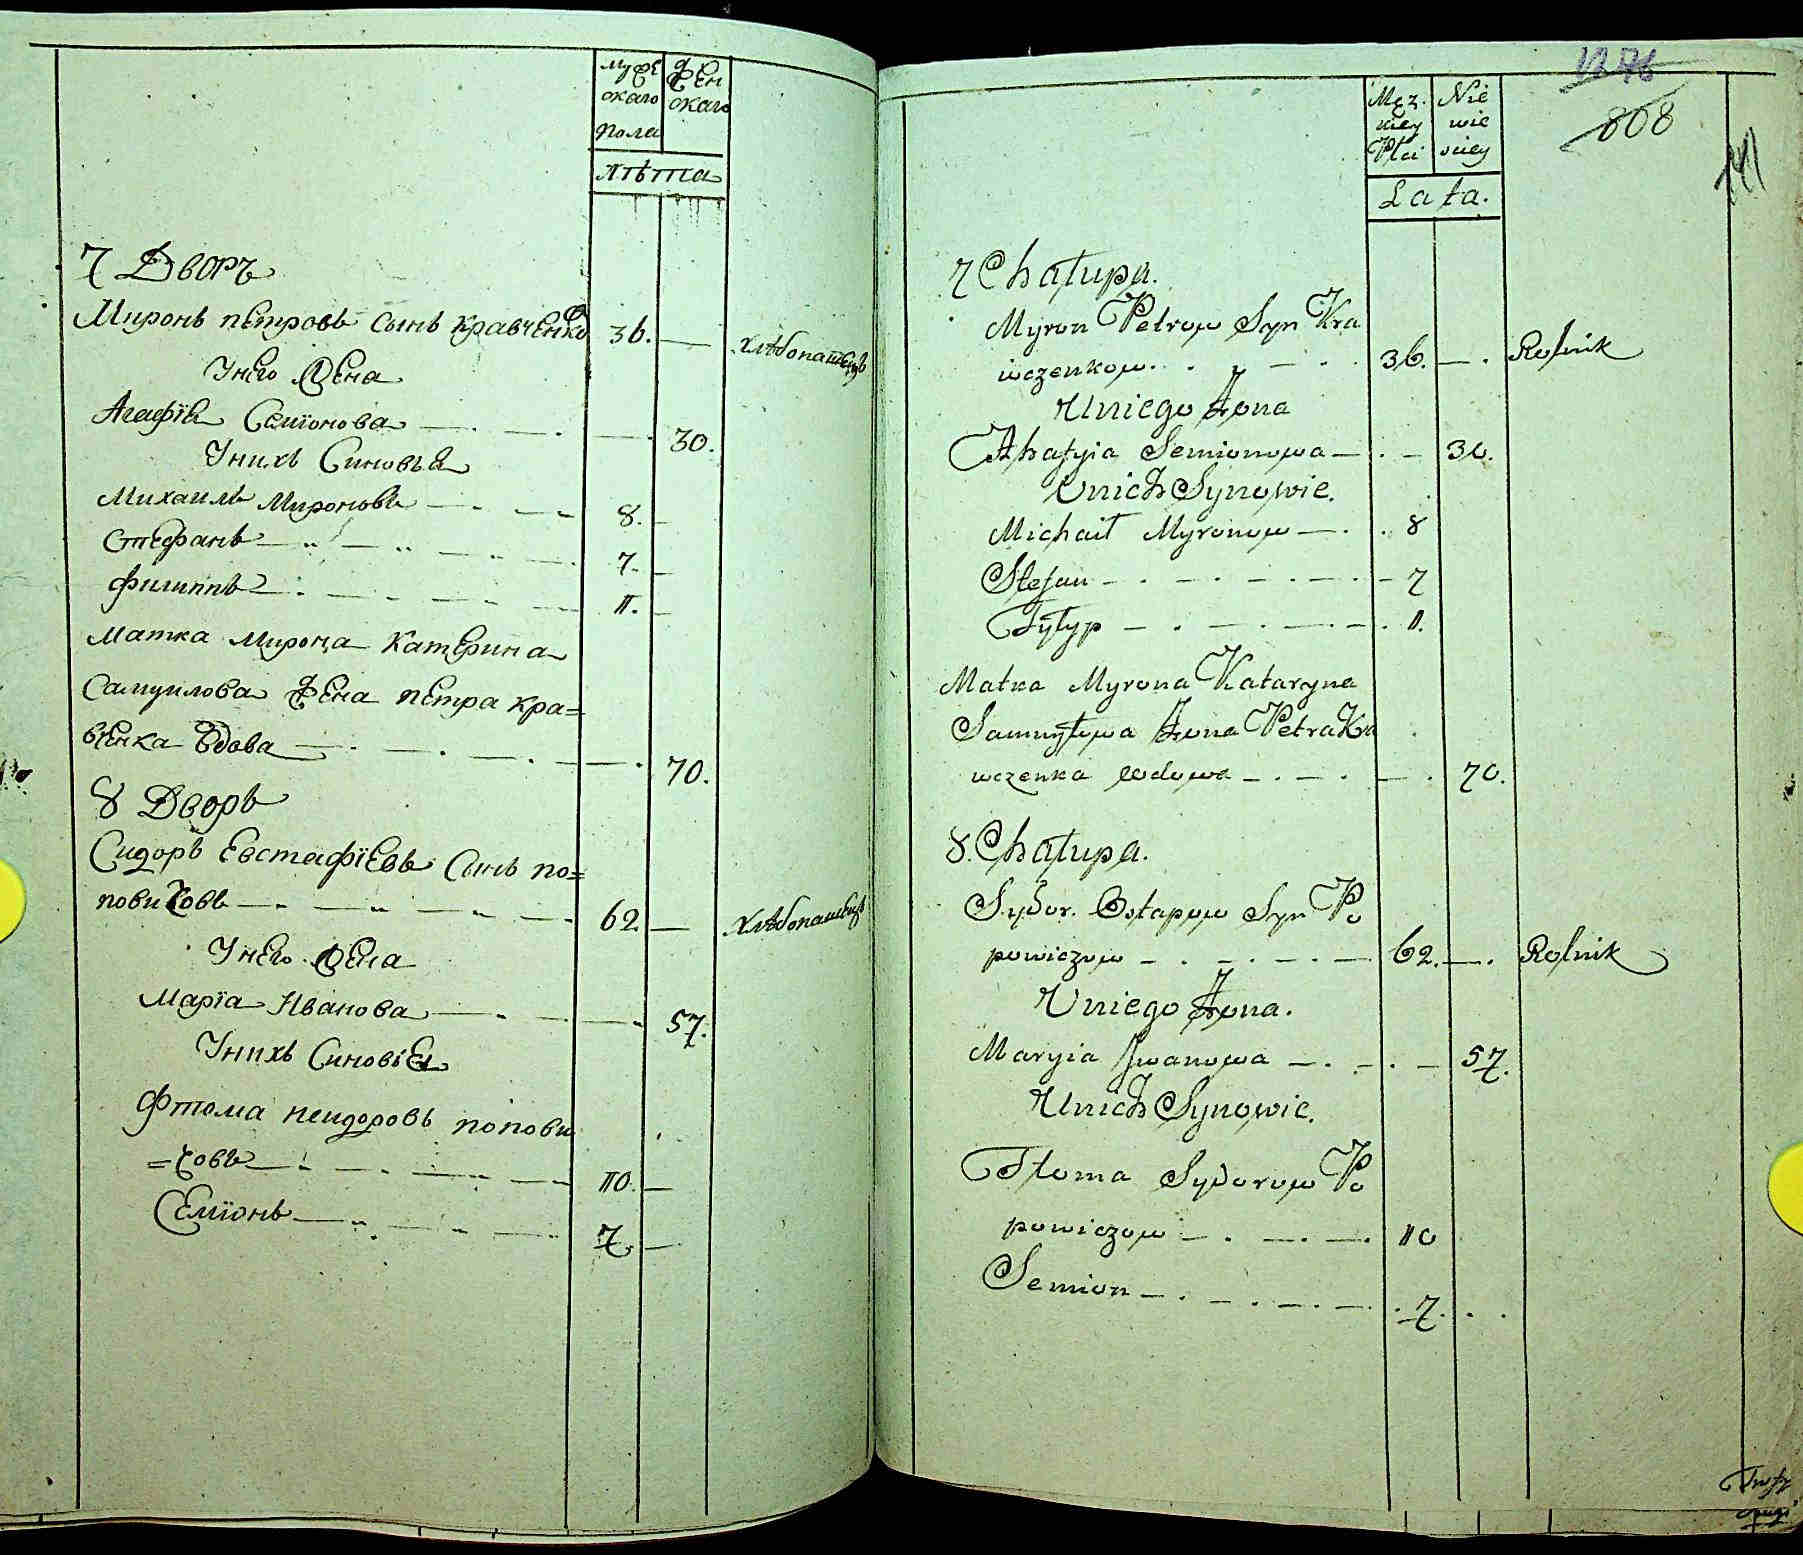 мужe
скаго
пола
жен
скаго
лѣта
7 Дворъ
Миронъ петровъ сынъ кравченко 36. — хлѣбопашецъ
Унего жена
Агафiя Семiонова — 30.
Унихъ Синовья
Михаилъ Мироновъ — 8. —
Стефанъ — 7. —
филиппъ — 11. —
матка мирона катерина
Самуилова жена петра кра=
вченка вдова — 70.
8 Дворъ
Сидоръ Евстафiевъ сынъ по=
повичовъ — 62. — хлѣбопашецъ
Унего жена
Марiа Иванова — 57.
Унихъ Синовiя
Фтома попови
=човъ — 110. —
Семiонъ — 7. —
1276
808
141
Męz.
kiey
Płci
Nie
wie
sciey
Lata.
7 Chałupa.
Myron Petrow Syn Kra
wczenkow. 36. — Rolnik
Uniego Żona
Ahafyia Semionowa — 30.
Unich Synowie.
Michaił Myronow — 8
Stefan — 7
Fyłyp — 11.
Matka Myrona Kataryna
Samuyłowa Żona Petra Kra
wczenka wdowa — 70.
8. Chałupa.
Sydor. Ostapow Syn Po
powiczow — 62. — Rolnik
Uniego Żona.
Maryia Jwanowa — 57.
Unich Synowie.
Ftoma Sydorow Po
powiczow — 110
Semion — 7.